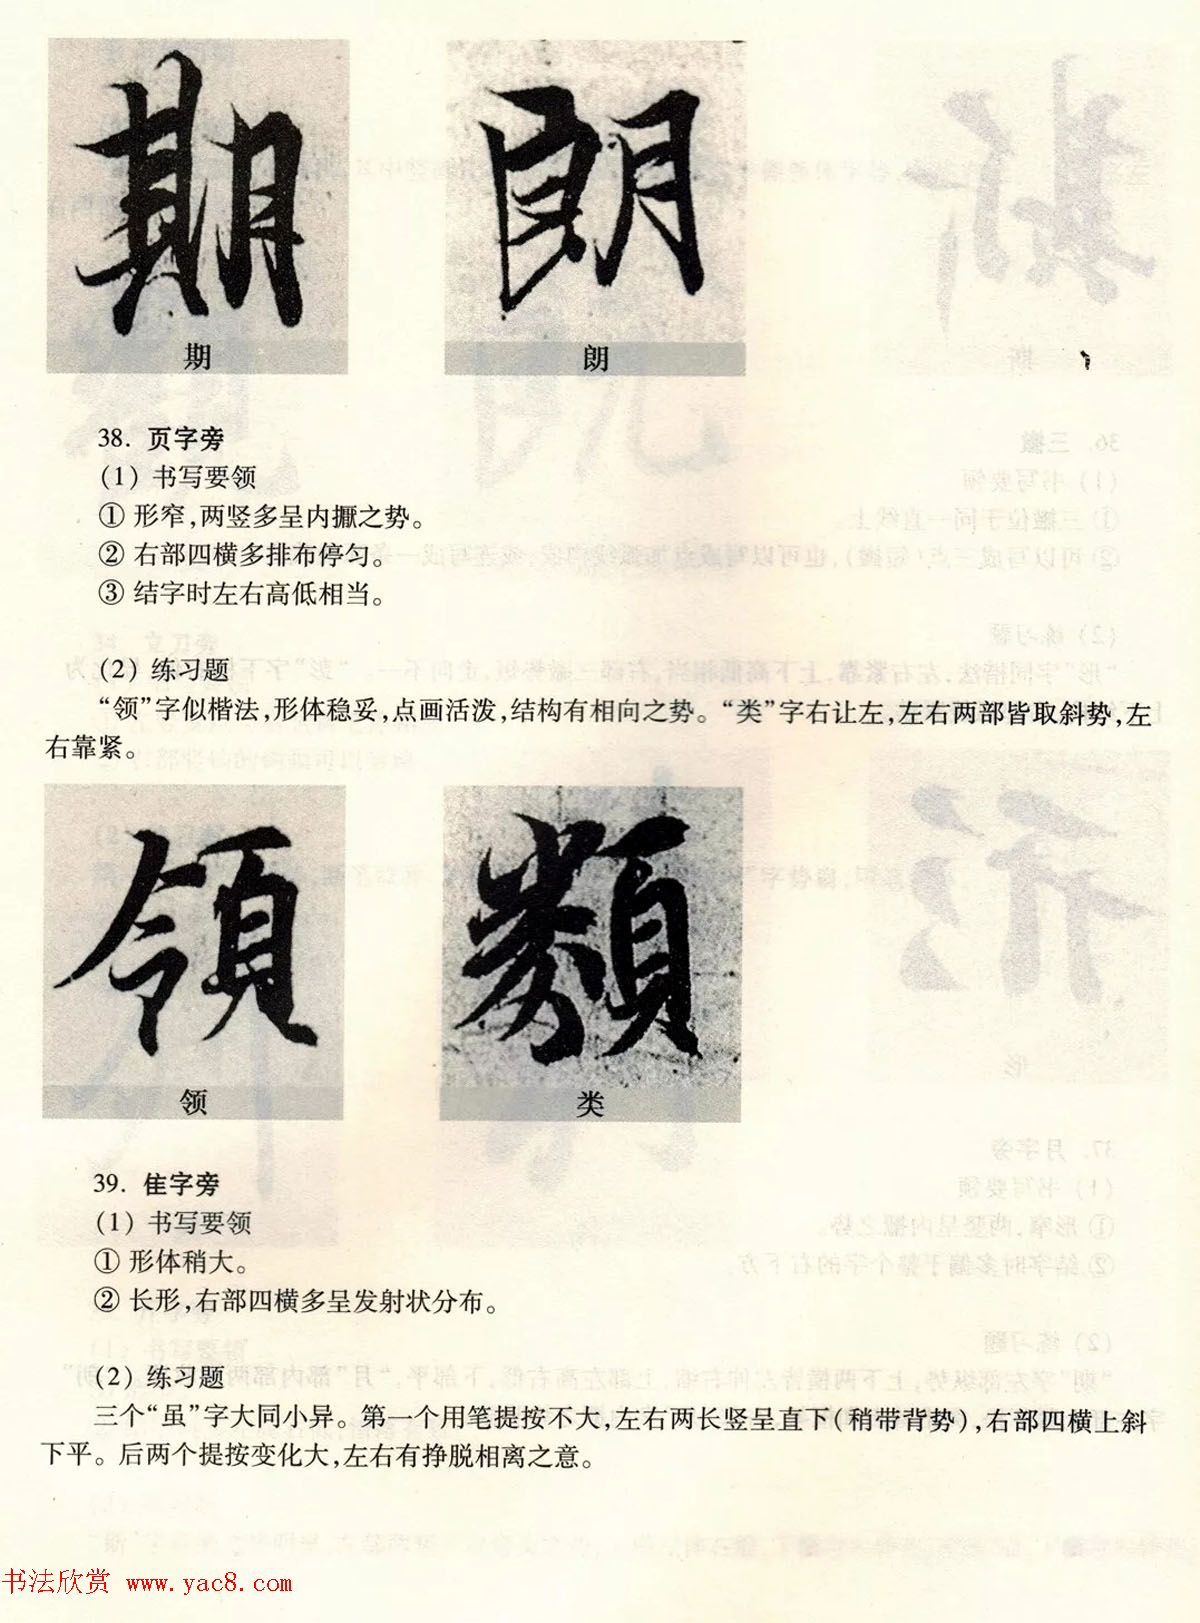 期 朗
期 朗
38. 页字旁
(1) 书写要领
① 形窄,两竖多呈内擫之势。
② 右部四横多排布停匀。
③ 结字时左右高低相当。
(2) 练习题
“领”字似楷法,形体稳妥,点画活泼,结构有相向之势。“类”字右让左,左右两部皆取斜势,左
右靠紧。
領 類
领 类
39. 隹字旁
(1) 书写要领
① 形体稍大。
② 长形,右部四横多呈发射状分布。
(2) 练习题
三个“虽”字大同小异。第一个用笔提按不大,左右两长竖呈直下(稍带背势),右部四横上斜
下平。后两个提按变化大,左右有挣脱相离之意。
书法欣赏 www.yac8.com